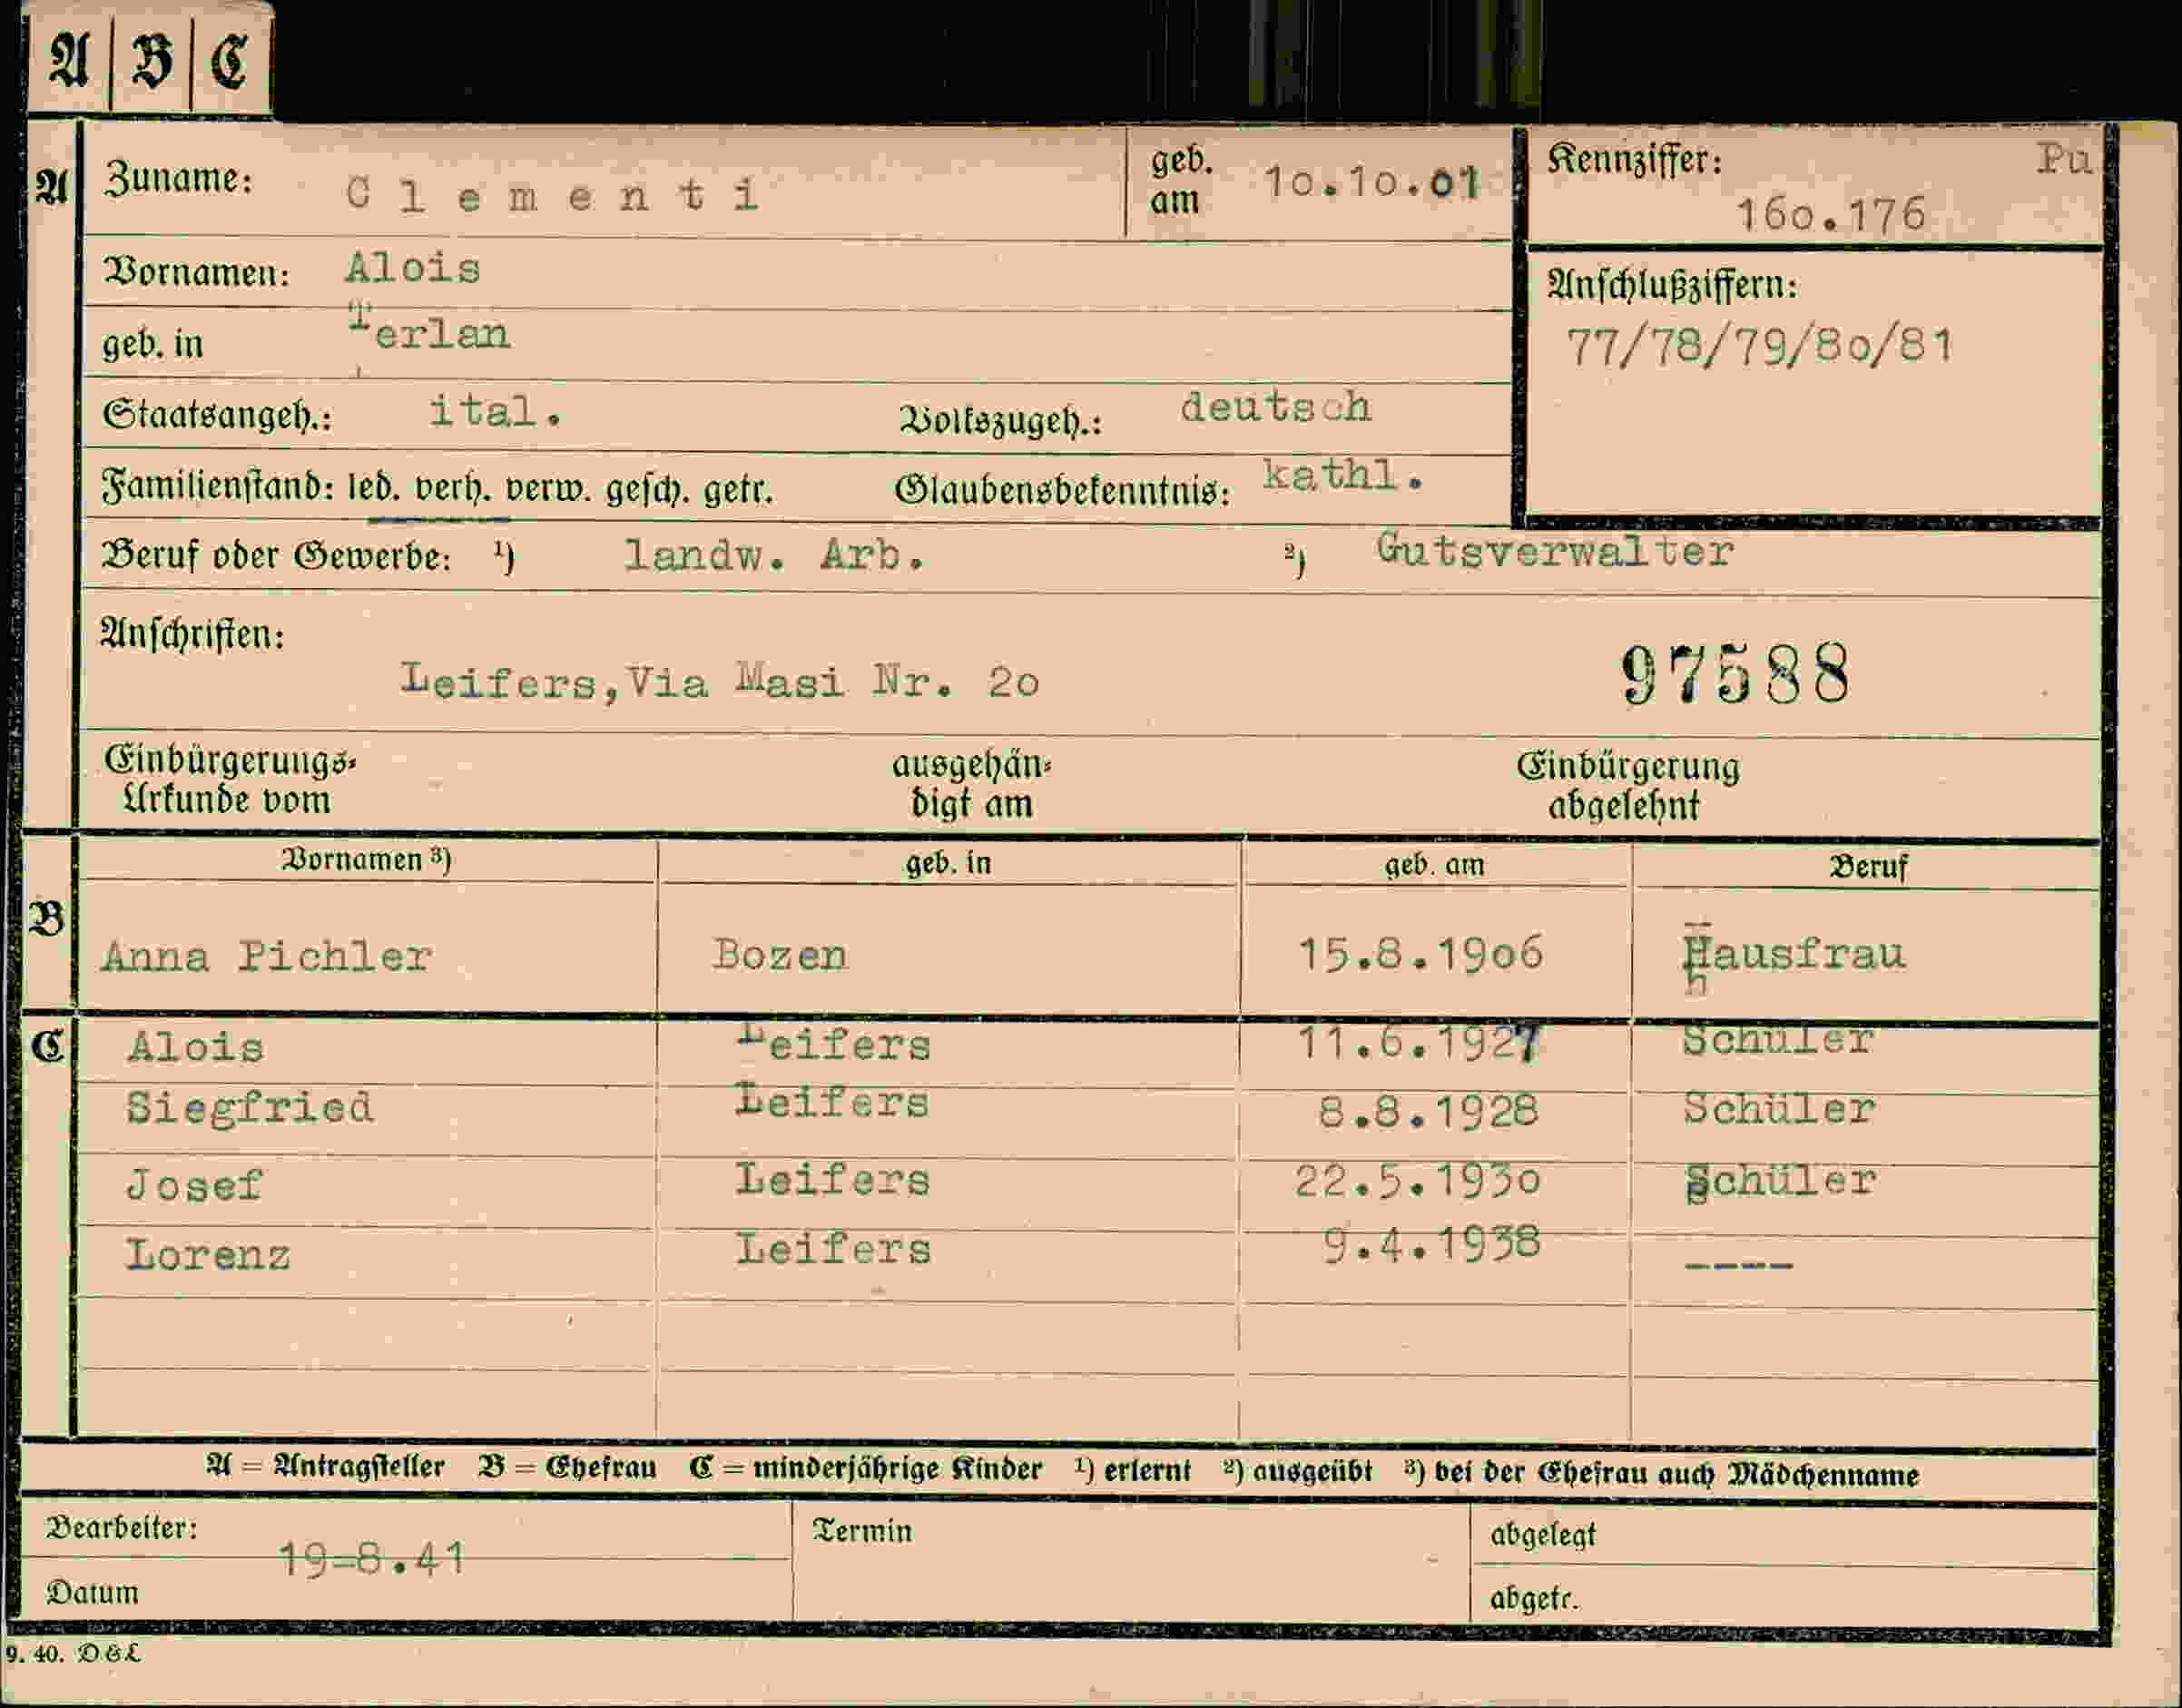 A | B | C
A Zuname: Clementi geb. am 10.10.01 Kennziffer: Pu
160.176
Vornamen: Alois
Anschlußziffern:
geb. in Terlan 77/78/79/80/81
Staatsangeh.: ital. Volkszugeh.: deutsch
Familienstand: led. verh. verw. gesch. getr. Glaubensbekenntnis: kathl.
Beruf oder Gewerbe: ¹) landw. Arb. ²) Gutsverwalter
Anschriften:
Leifers, Via Masi Nr. 20 97588
Einbürgerungs- ausgehän- Einbürgerung
Urkunde vom digt am abgelehnt
Vornamen ³) geb. in geb. am Beruf
B
Anna Pichler Bozen 15.8.1906 Hausfrau
C Alois Leifers 11.6.1927 Schüler
Siegfried Leifers 8.8.1928 Schüler
Josef Leifers 22.5.1930 Schüler
Lorenz Leifers 9.4.1938 ----
A = Antragsteller B = Ehefrau C = minderjährige Kinder ¹) erlernt ²) ausgeübt ³) bei der Ehefrau auch Mädchenname
Bearbeiter: Termin abgelegt
19=8.41
Datum abgetr.
9. 40. D&L